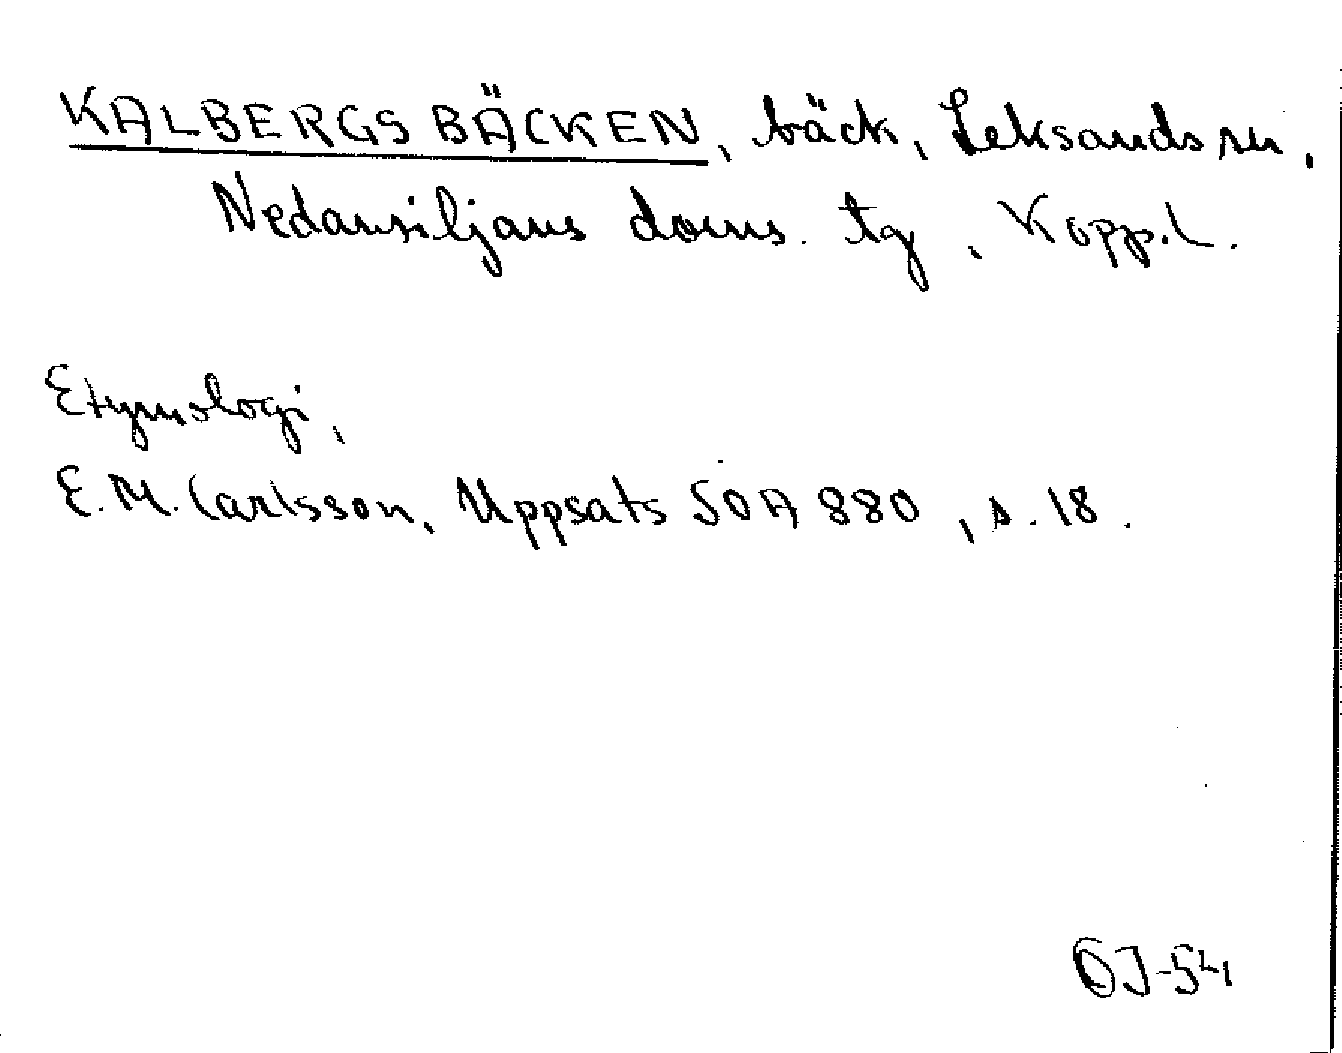 KALBERGSBÄCKEN, bäck, Leksands sn,
Nedansiljans doms. tg, Kopp.l.
Etymologi,
E.M. Carlsson, Uppsats SOA 880, s. 18.
OJ-54